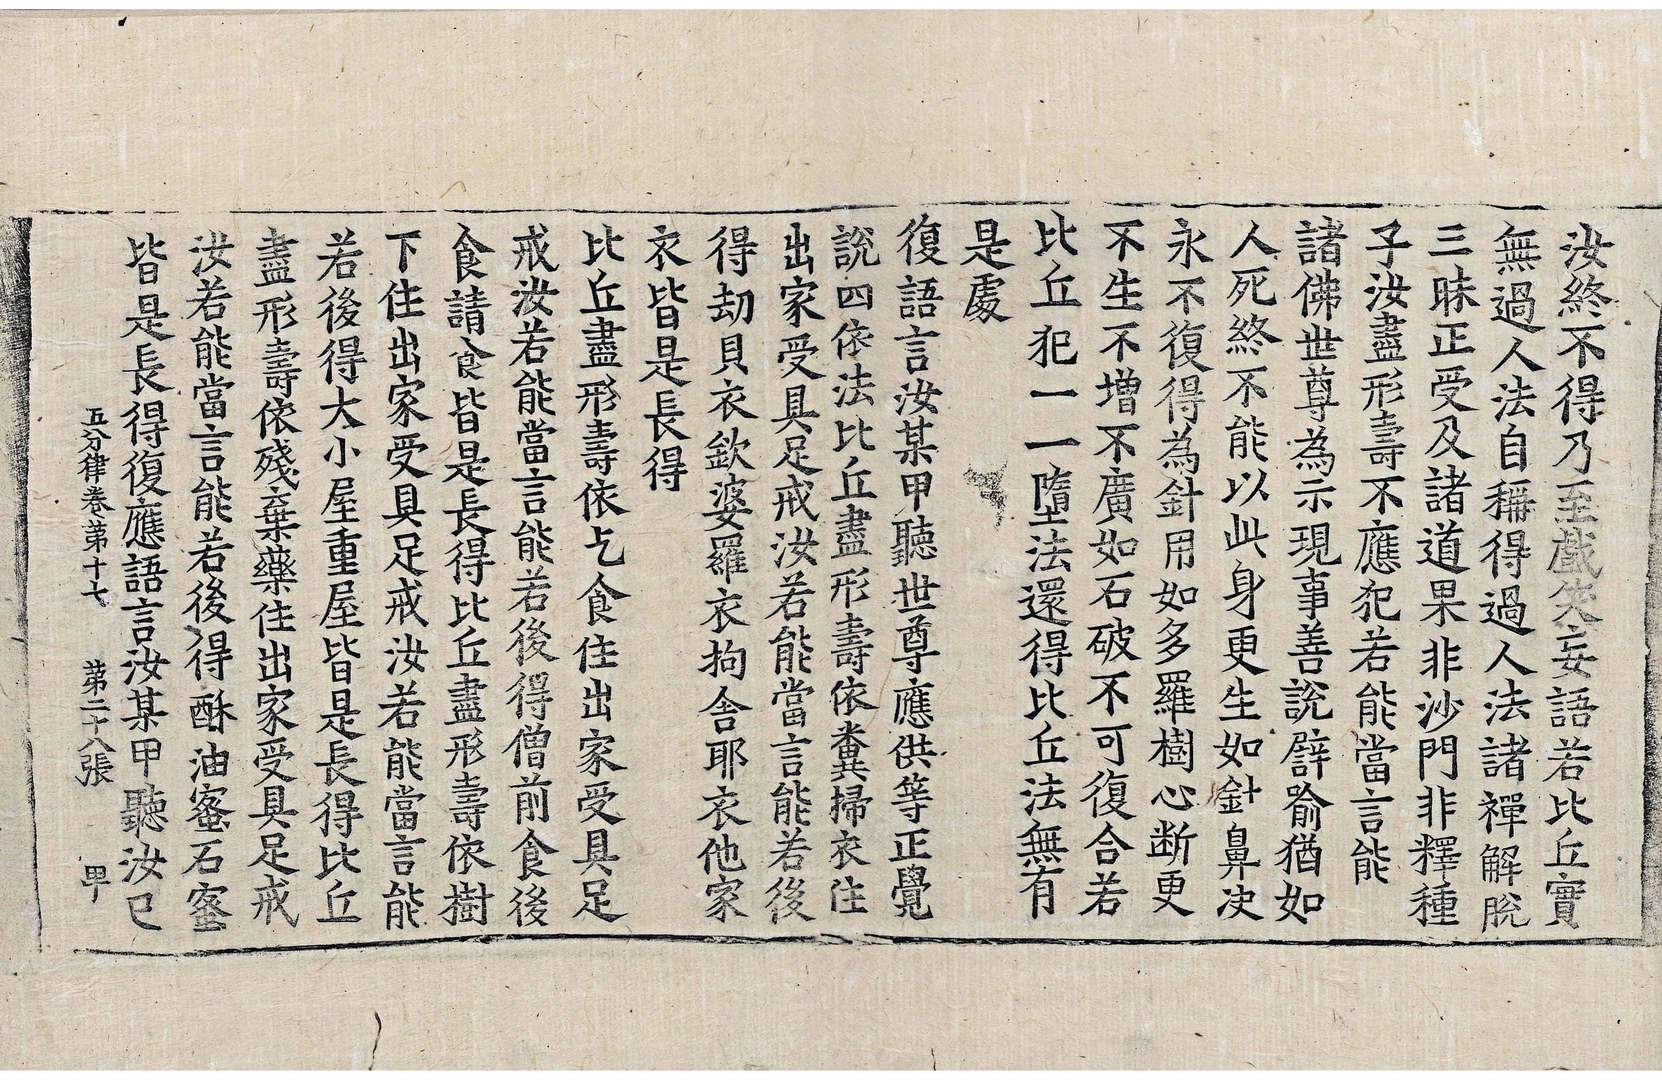 汝終不得乃至戲笑妄語若比丘實
無過人法自稱得過人法諸禪解脫
三昧正受及諸道果非沙門非釋種
子汝盡形壽不應犯若能當言能
諸佛世尊為示現事善說辟喻猶如
人死終不能以此身更生如針鼻决
永不復得為針用如多羅樹心断更
不生不增不廣如石破不可復合若
比丘犯一一墮法還得比丘法無有
是處
復語言汝某甲聽世尊應供等正覺
說四依法比丘盡形壽依糞掃衣住
出家受具足戒汝若能當言能若後
得劫貝衣欽婆羅衣拘舍耶衣他家
衣皆是長得
比丘盡形壽依乞食住出家受具足
戒汝若能當言能若後得僧前食後
食請食皆是長得比丘盡形壽依樹
下住出家受具足戒汝若能當言能
若後得大小屋重屋皆是長得比丘
盡形壽依殘棄藥住出家受具足戒
汝若能當言能若後得酥油蜜石蜜
皆是長得復應語言汝某甲聽汝已
五分律卷第十七 第二十八張 甲